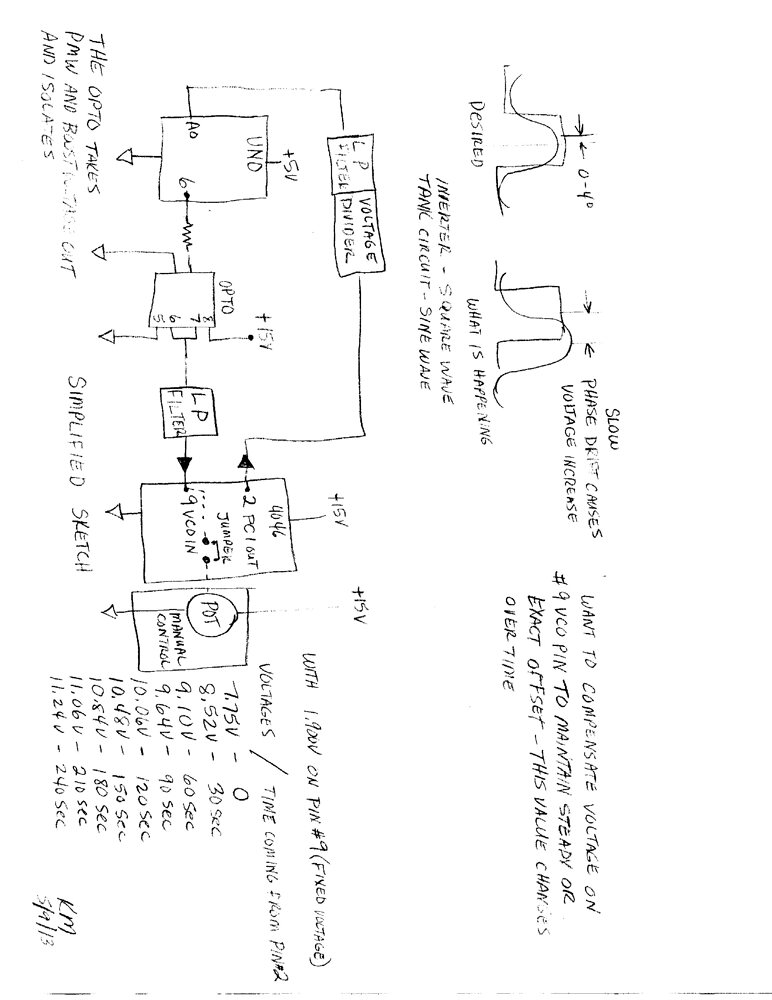 SLOW
PHASE DRIFT CAUSES
VOLTAGE INCREASE
0-4°
DESIRED
WHAT IS HAPPENING
INVERTER - SQUARE WAVE
TANK CIRCUIT - SINE WAVE
WANT TO COMPENSATE VOLTAGE ON
#9 VCO PIN TO MAINTAIN STEADY OR
EXACT OFFSET - THIS VALUE CHANGES
OVER TIME
LP
FILTER
VOLTAGE
DIVIDER
+5V
UNO
A0
6
OPTO
8
7
6
5
+15V
LP
FILTER
+15V
4046
2 PC1 OUT
JUMPER
9 VCO IN
+15V
POT
MANUAL
CONTROL
THE OPTO TAKES
PMW AND BOOST OUT
AND ISOLATES
SIMPLIFIED SKETCH
WITH 1.900V ON PIN #9 (FIXED VOLTAGE)
VOLTAGES / TIME COMING FROM PIN#2
7.75V - 0
8.52V - 30 SEC
9.10V - 60 SEC
9.64V - 90 SEC
10.06V - 120 SEC
10.48V - 150 SEC
10.84V - 180 SEC
11.06V - 210 SEC
11.24V - 240 SEC
KM
5/9/13